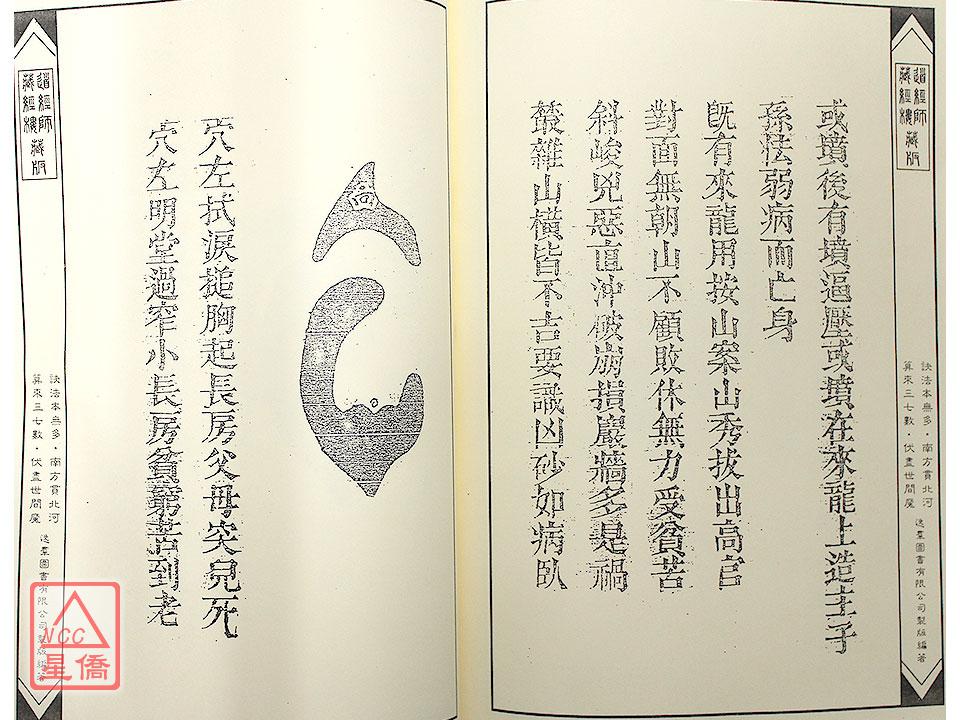 道經師
藏經樓藏版
訣法本無多・南方貫北河
算來三七數・伏盡世間魔
逸羣圖書有限公司製版編著
或墳後有墳逼壓或墳在來龍上造主子
孫法弱病而亡身
既有來龍用按山案山秀拔出高官
對面無朝山不顧敗休無力受貧苦
斜峻兇惡直沖破崩損巖牆多是禍
叢雜山橫皆不吉要識凶砂如病臥
高
穴左拭淚搥胸起長房父母哭兒死
穴左明堂過窄小長房貧窮苦到老
道經師
藏經樓藏版
訣法本無多・南方貫北河
算來三七數・伏盡世間魔
逸羣圖書有限公司製版編著
NCC
星僑